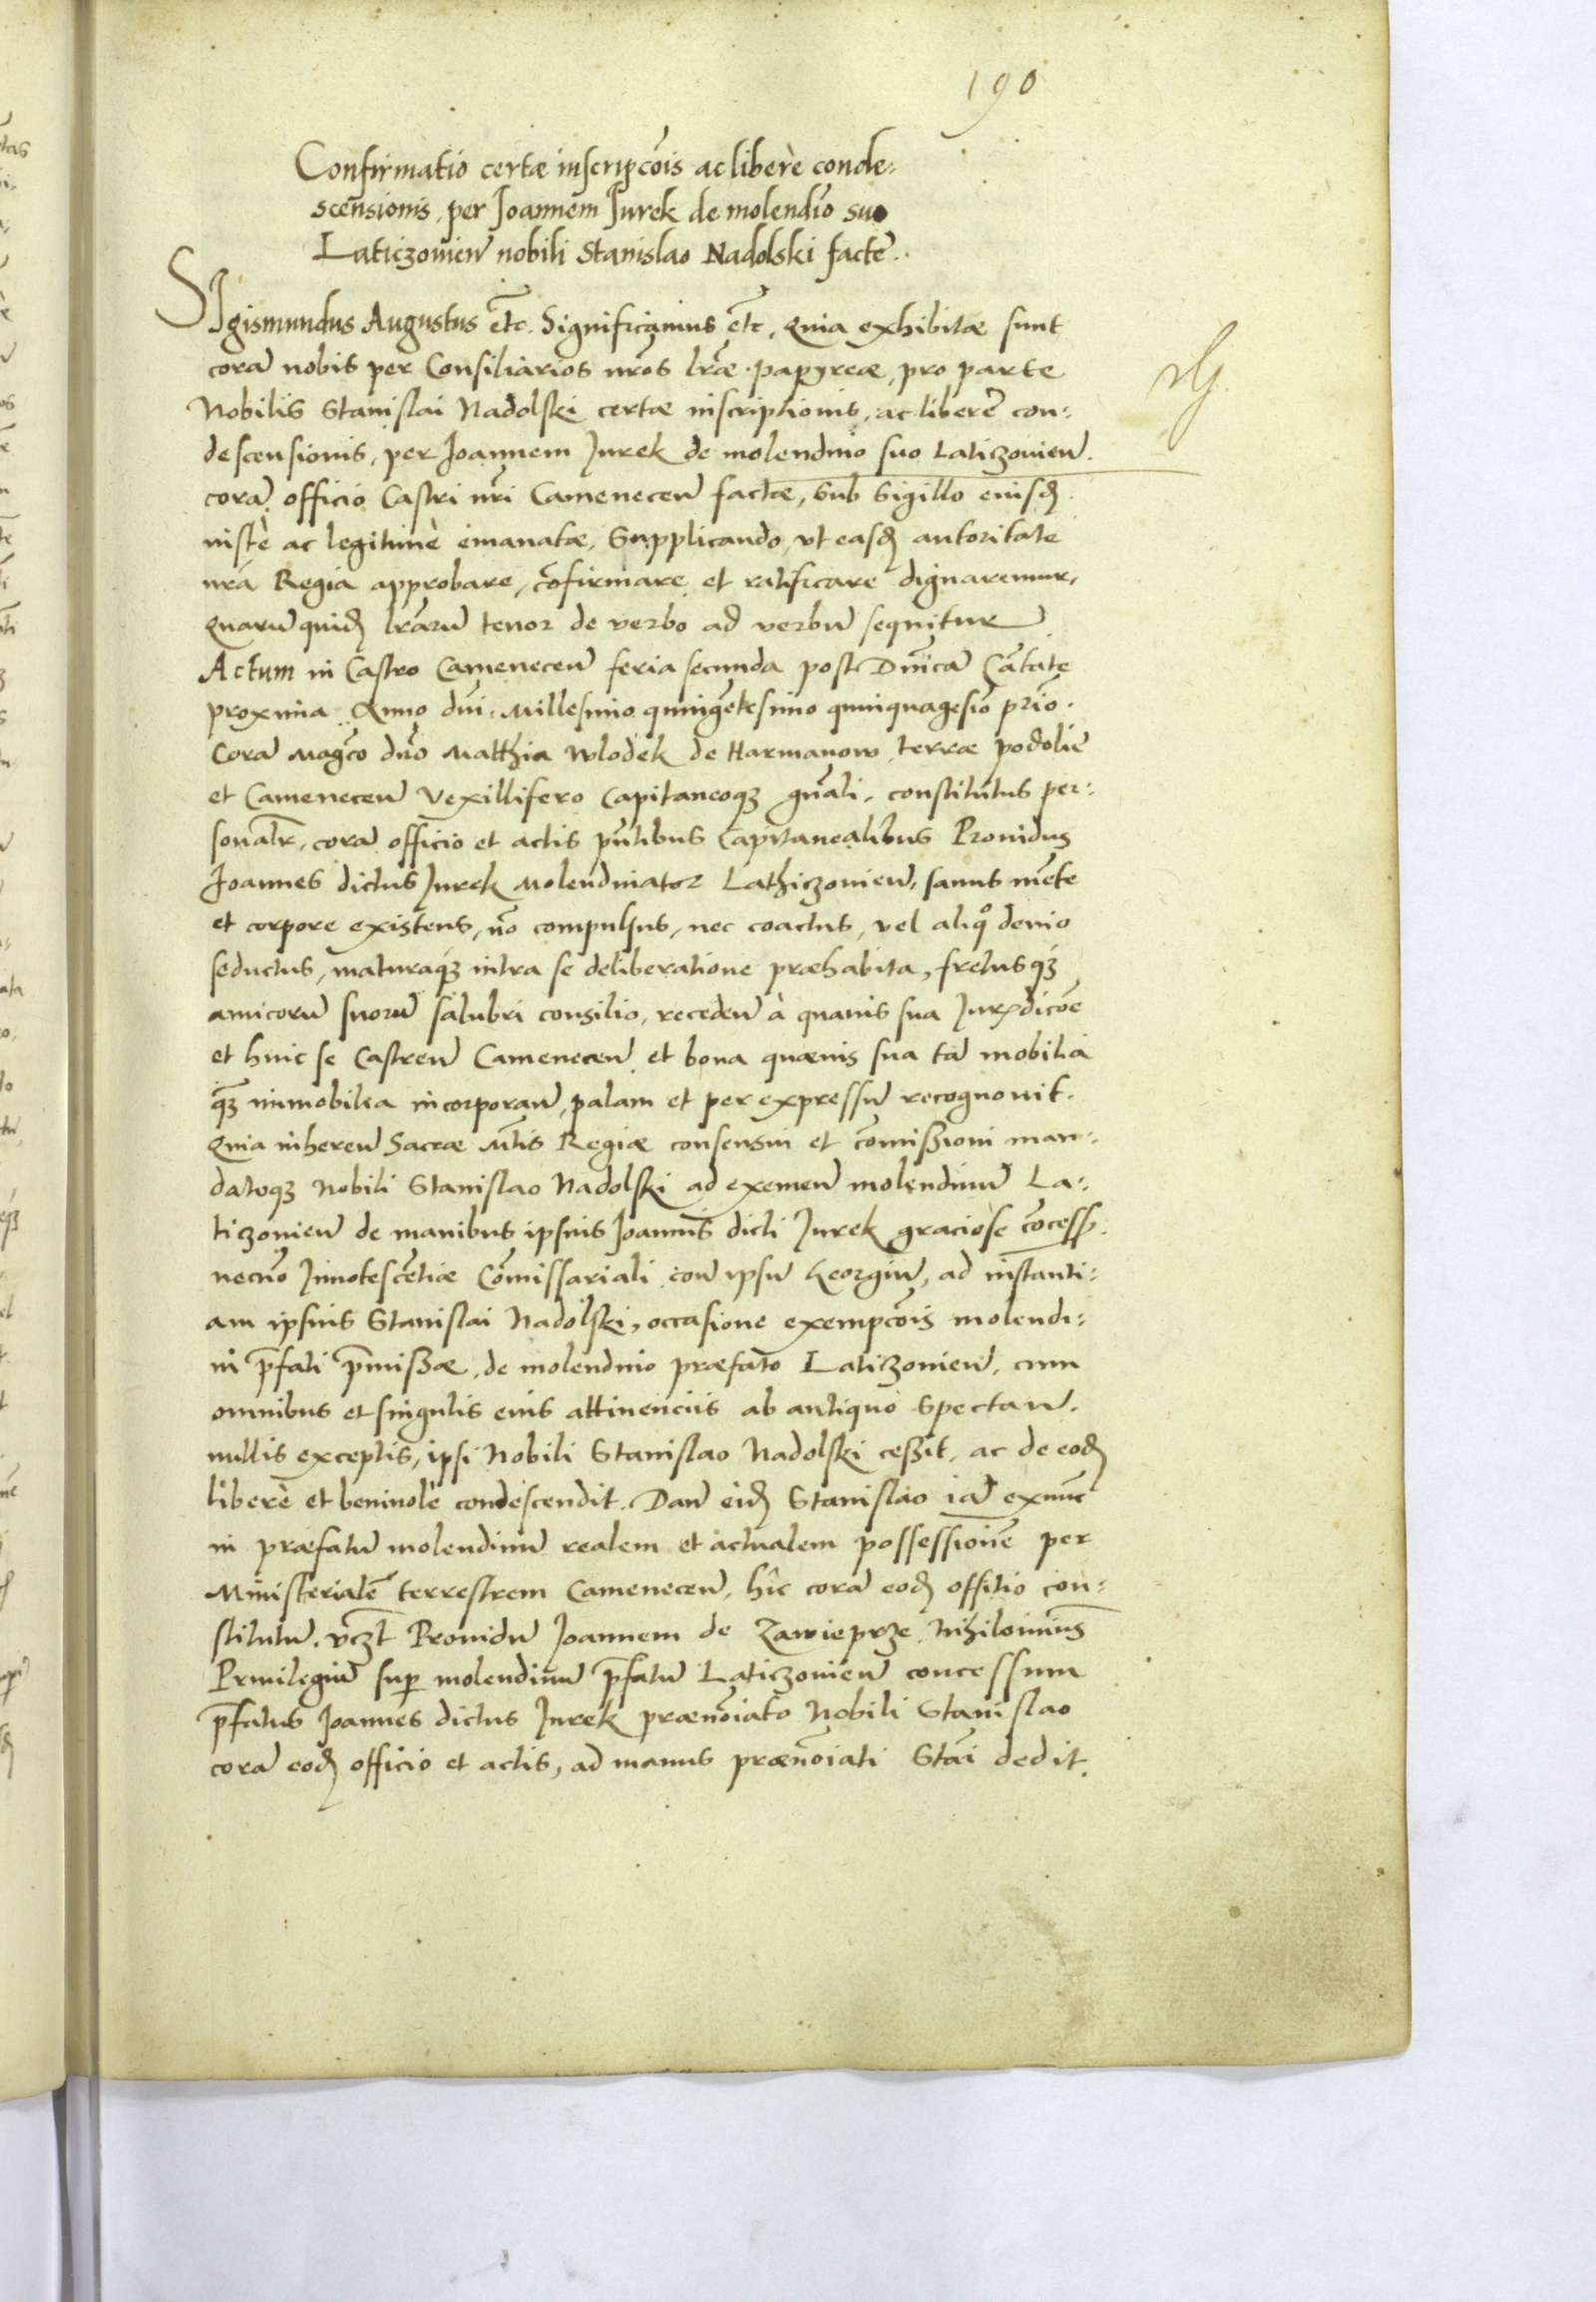 190
Confirmatio certæ inscripcõis ac liberè conde:
scensionis, per Joannem Jurek de molendĩo suo
Laticzouieñ nobili Stanislao Nadolski factẽ.
SIgismundus Augustus etc̃. Significamus etc̃. Quia exhibitæ sunt
corã nobis per Consiliarios nr̃os lr̃æ papyreæ, pro parte
Nobilis Stanislai Nadolski certæ inscriptionis, ac liberẽ con:
descensionis, per Joannem Jurek de molendino suo Laticzouieñ.
corã officio Castri nr̃i Cameneceñ factæ, Sub Sigillo eiusđ
iustè ac legitimè emanatæ, Supplicando, vt easđ autoritate
nr̃a Regia approbare, cõfirmare et ratificare dignaremur,
quarũ quiđ lr̃arũ tenor de verbo ad verbũ sequitur
Actum in Castro Cameneceñ feria secunda post Dñicã Cãtate
proxima Anno dñi Millesimo quingẽtesimo quinquagesĩo prĩo.
Corã Mag̃co dño Matthia Wlodek de Harmanow, terræ podoliẽ
et Cameneceñ Vexillifero Capitaneoqꝫ gñali, constitutus per:
sonalr̃, corã officio et actis pñtibus Capitanealibus Prouidus
Joannes dictus Jurek Molendinator Lathiczouieñ, sanus mẽte
et corpore existens, nõ compulsus, nec coactus, vel aliqͦ deuio
seductus, maturaqꝫ intra se deliberatione præhabita, fretusqꝫ
amicorũ suorũ salubri consilio, recedeñ à quauis sua Jurisdicõe
et huic se Castreñ Cameneceñ et bona quæuis sua tã mobilia
qꝫ immobilia incorporañ, palam et per expressũ recognouit.
Quia inhereñ Sacræ Mtis Regiæ consensui et cõmissioni man:
datoqꝫ Nobili Stanislao Nadolski ad exemeñ molendinũ La:
ticzouieñ de manibus ipsius Joannis dicti Jurek graciose cõcess.
necnõ Innotescẽtiæ Cõmissariali coñ ipsũ Georgiũ, ad instanti:
am ipsius Stanislai Nadolski, occasione exempcõis molendi:
ni p̃fati p̃missæ, de molendino præfato Laticzouieñ, cum
omnibus et singulis eius attinenciis ab antiquo Spectañ.
nullis exceptis, ipsi Nobili Stanislao Nadolski cessit, ac de eođ
liberè et beniuolè condescendit. Dañ eiđ Stanislao iã exnũc
in præfatũ molendinũ realem et actualem possessionẽ per
Ministerialẽ terrestrem Cameneceñ, hîc corã eođ offitio con:
stitutũ, vczt Prouidũ Joannem de Zawieprze. Nihilominus
Priuilegiũ suꝑ molendinũ p̃fatũ Laticzouieñ concessum
p̃fatus Joannes dictus Jurek prænõiato Nobili Stanislao
corã eođ officio et actis, ad manus prænõiati Stãi dedit.